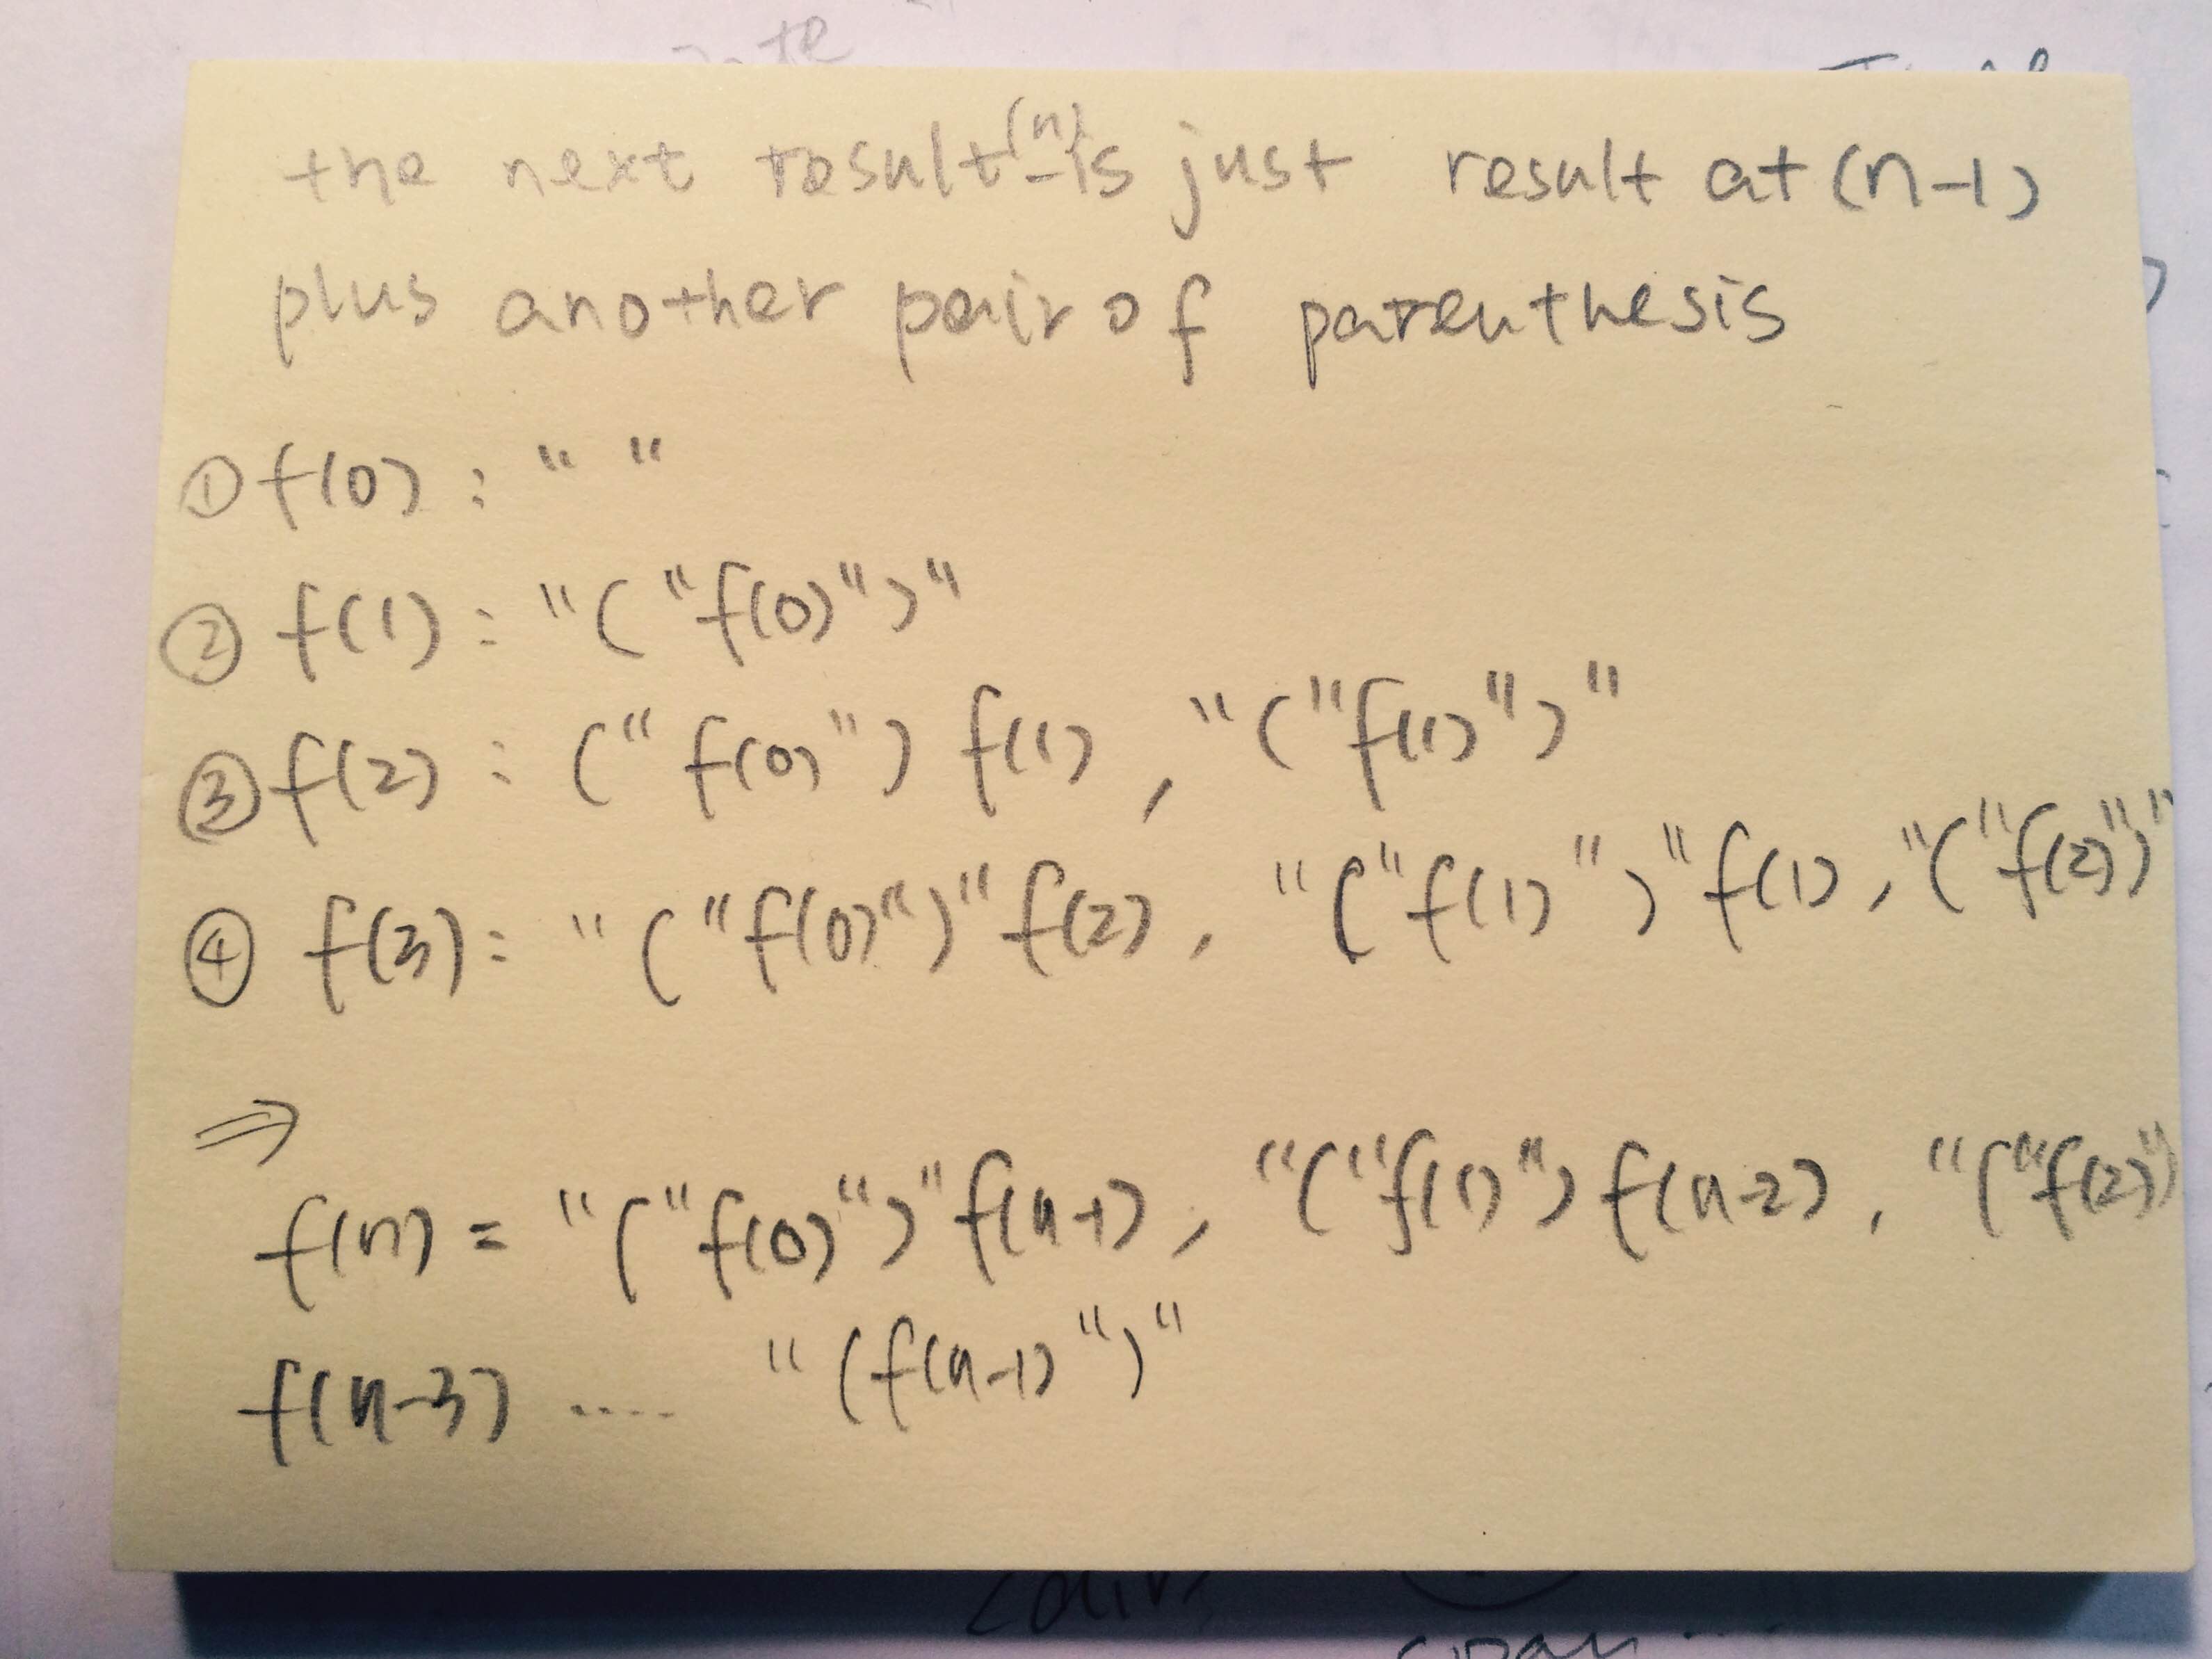 te
the next result (n) is just result at (n-1)
plus another pair of parenthesis
① f(0) : " "
② f(1) : "("f(0)")"
③ f(2) : ("f(0)") f(1) , "("f(1)")"
④ f(3) : "("f(0)")" f(2) , "("f(1)")" f(1) , "("f(2)")"
⇒
f(n) = "("f(0)")" f(n-1) , "("f(1)") f(n-2) , "("f(2)")
f(n-3) .... "(f(n-1)")"